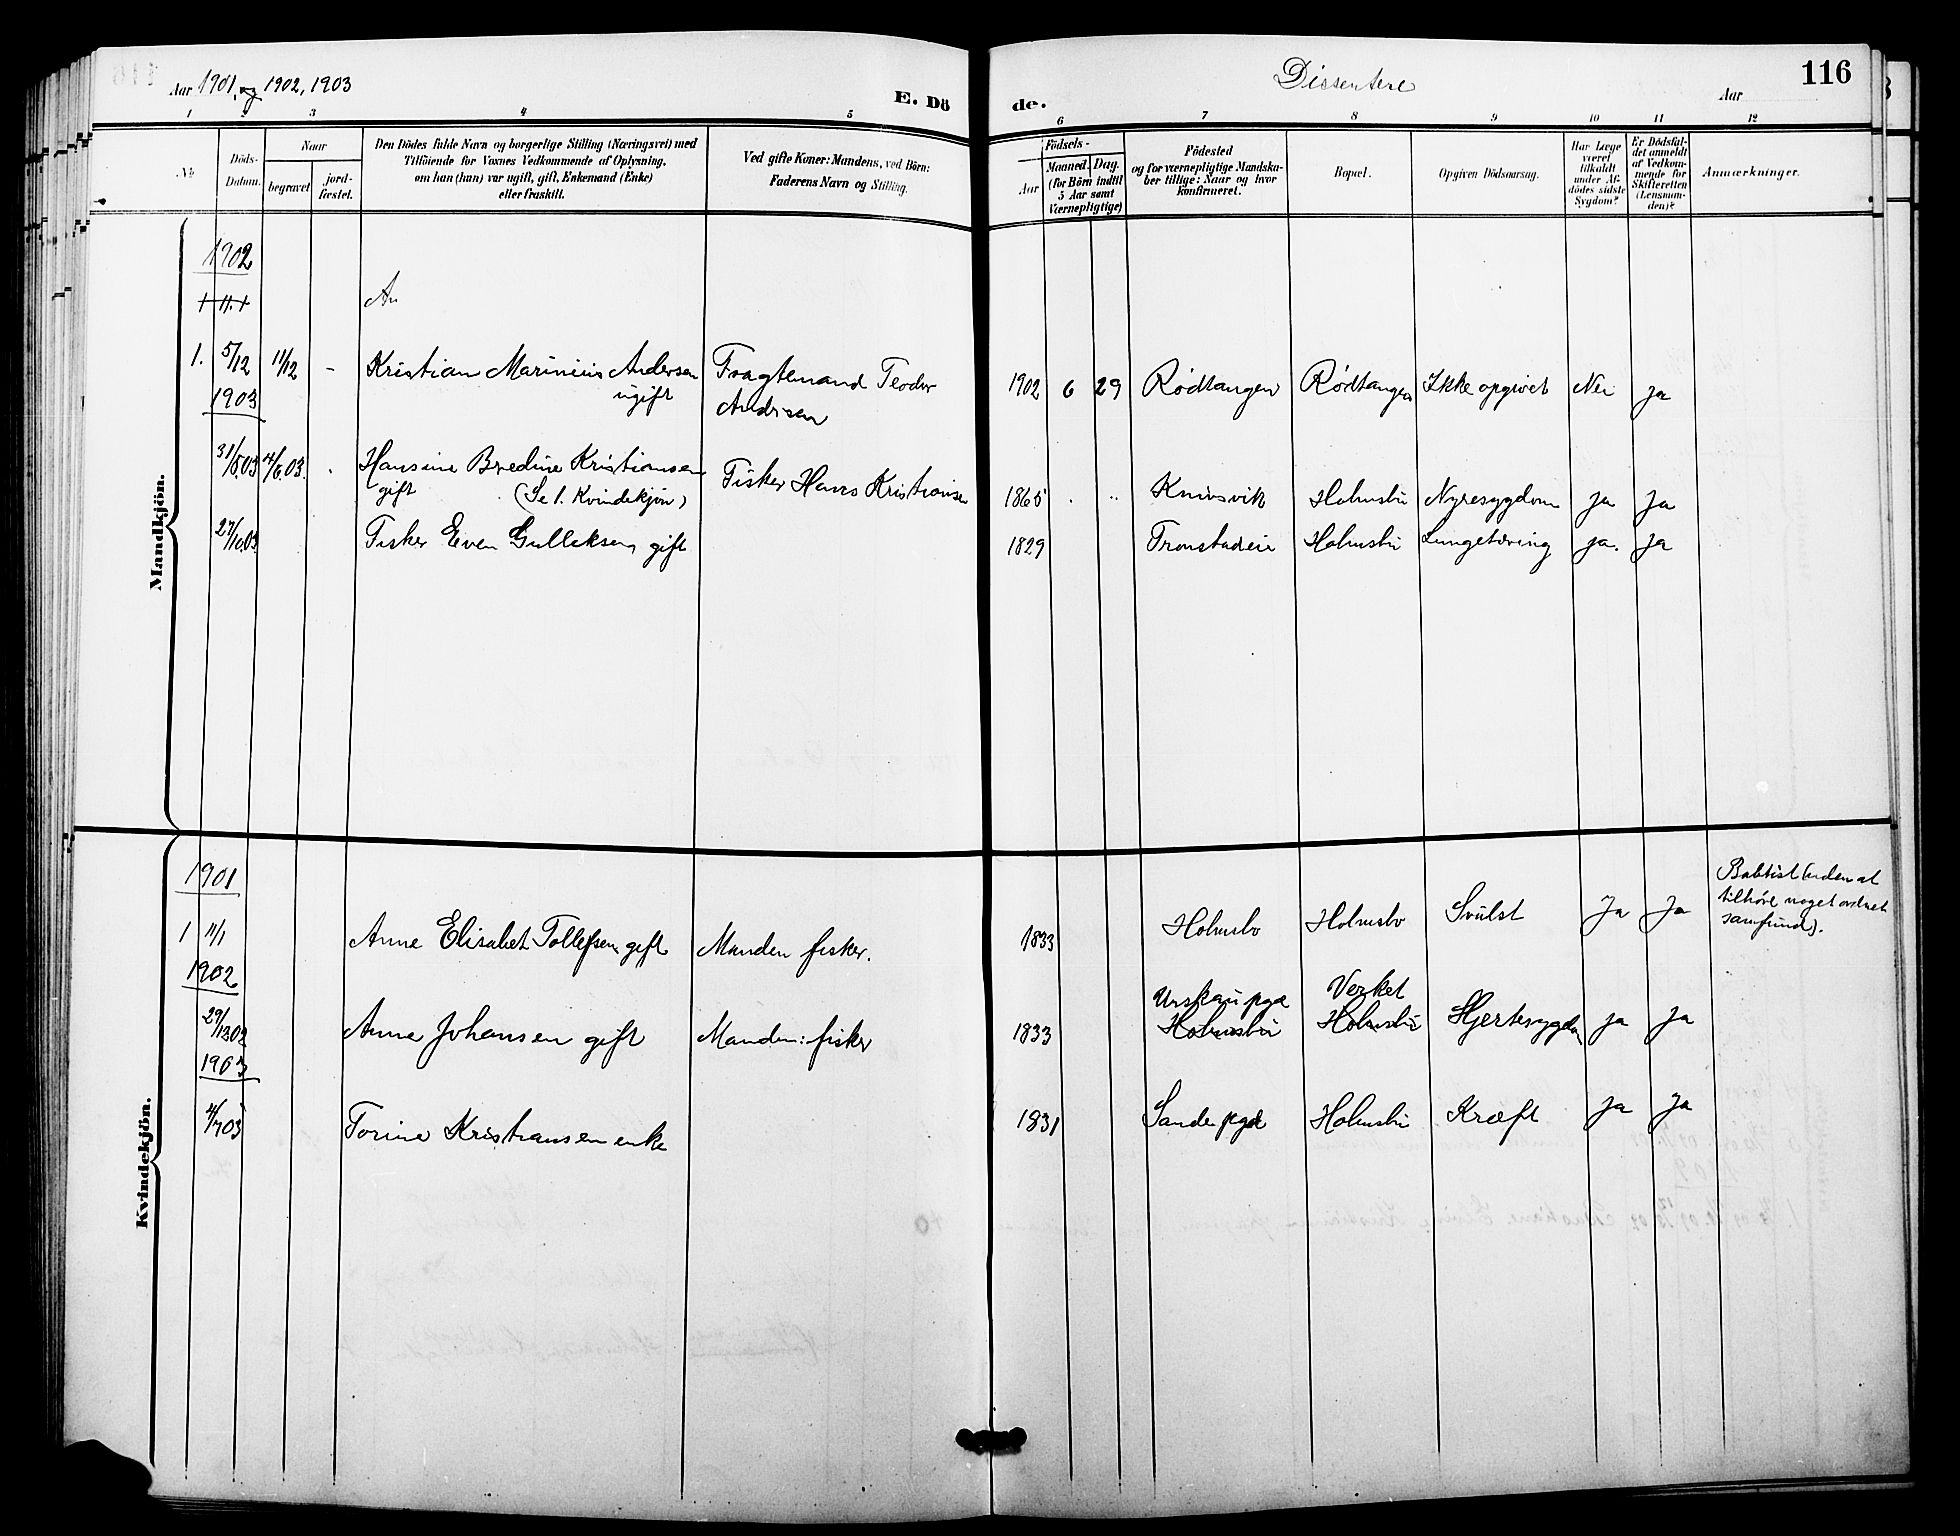 Aar 1901, og 1902, 1903
E. Dö
de.
Dissentere
Aar
116
1 2 3 4 5 6 7 8 9 10 11 12
No
Döds-
Datum.
Naar
begravet
jord-
fæstet.
Den Dödes fulde Navn og borgerlige Stilling (Næringsvei) med
Tilföiende for Voxnes Vedkommende af Oplysning,
om han (hun) var ugift, gift, Enkemand (Enke)
eller fraskilt.
Ved gifte Koner: Mandens, ved Börn:
Faderens Navn og Stilling.
Födsels-
Aar
Maaned. Dag.
(for Börn indtil
5 Aar samt
Værnepligtige)
Födested
og for værnepligtige Mandska-
ber tillige: Naar og hvor
konfirmeret.
Bopæl.
Opgiven Dödsaarsag.
Har Læge
været
tilkaldt
under Af-
dödes sidste
Sygdom?
Er Dödsfal-
det anmeldt
af Vedkom-
mende for
Skifteretten
(Lensman-
den)?
Anmærkninger.
Mandkjön.
1902
An
1. 5/12 11/12 - Kristian Marinius Andersen Fragtemand Teodor 1902 6 29 Rødtangen Rødtangen Ikke opgivet Nei ja
ugift Andersen
1903
31/5.03 4/6.03 Hansine Bredine Kristiansen Fisker Hans Kristiansen 1865 Knivsvik Holmsbu Nyresygdom ja ja
gift (Se 1. Kvindekjøn)
27/10.03 Fisker Even Gulleksen, gift 1829 Tronstadeie Holmsbu Lungetæring ja. ja
Kvindekjön.
1901
1 11/1 Anne Elisabet Tollefsen gift Manden fisker. 1833 Holmsbo Holmsbo Svulst Ja Ja Babtist (uden at
tilhøre noget ordnet
samfund).
1902
Urskau pgd Verket
29/12.02 Anne Johansen gift Manden: fisker 1833 Holmsbu Holmsbu Hjertesygdom ja ja
1903
4/7.03 Torine Kristiansen enke 1831 Sande pgd Holmsbu Kræft ja ja